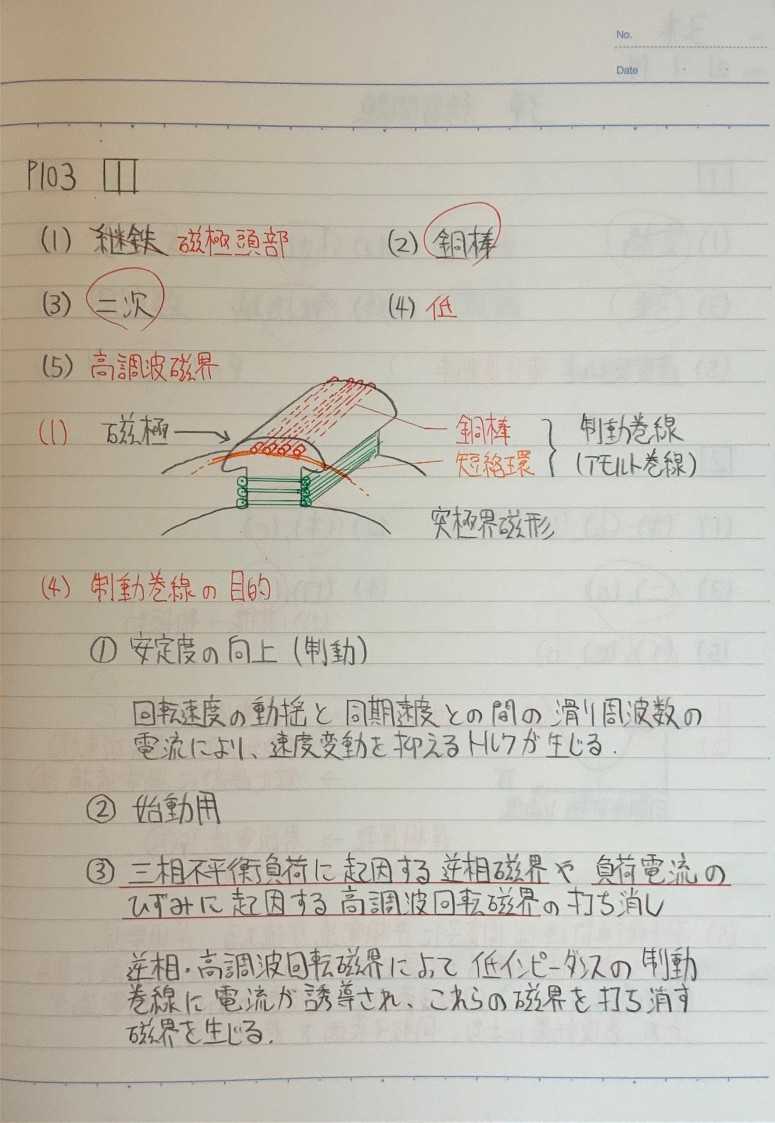 No.
Date
P103 1
(1) 継鉄 磁極頭部 (2) 銅棒
(3) 二次 (4) 低
(5) 高調波磁界
(1) 磁極 銅棒 制動巻線
短絡環 (アモルト巻線)
突極界磁形
(4) 制動巻線の目的
① 安定度の向上 (制動)
回転速度の動揺と同期速度との間の滑り周波数の
電流により、速度変動を抑えるトルクが生じる.
② 始動用
③ 三相不平衡負荷に起因する逆相磁界や負荷電流の
ひずみに起因する高調波回転磁界の打ち消し
逆相・高調波回転磁界によって低インピーダンスの制動
巻線に電流が誘導され、これらの磁界を打ち消す
磁界を生じる.